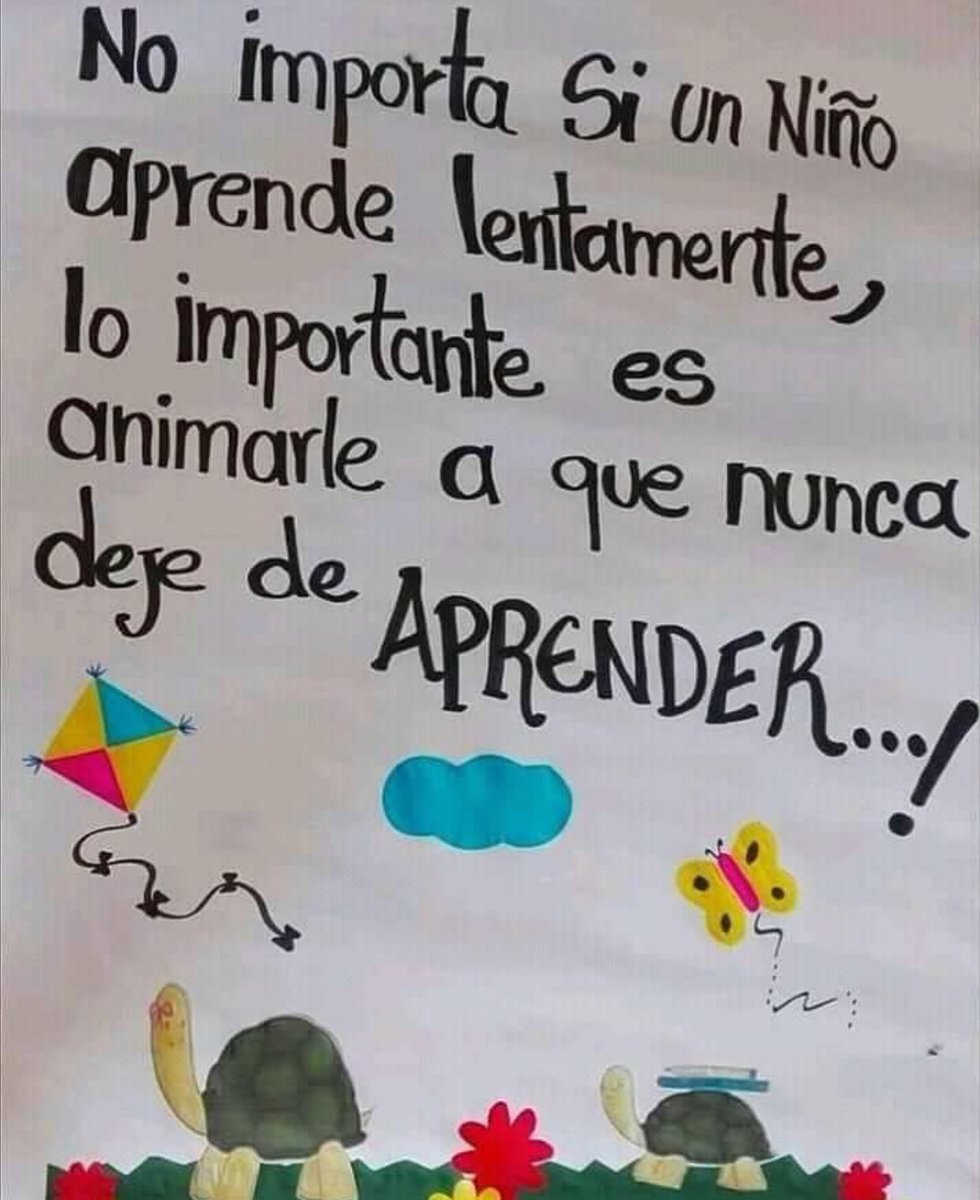 No importa Si un Niño
aprende lentamente,
lo importante es
animarle a que nunca
deje de
APRENDER...!